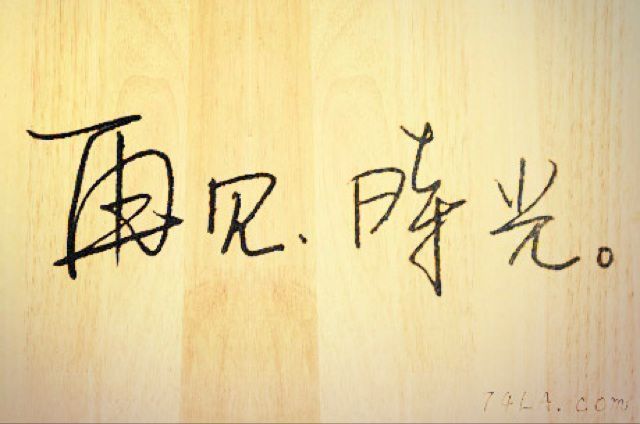 再见、時光。
74LA.com